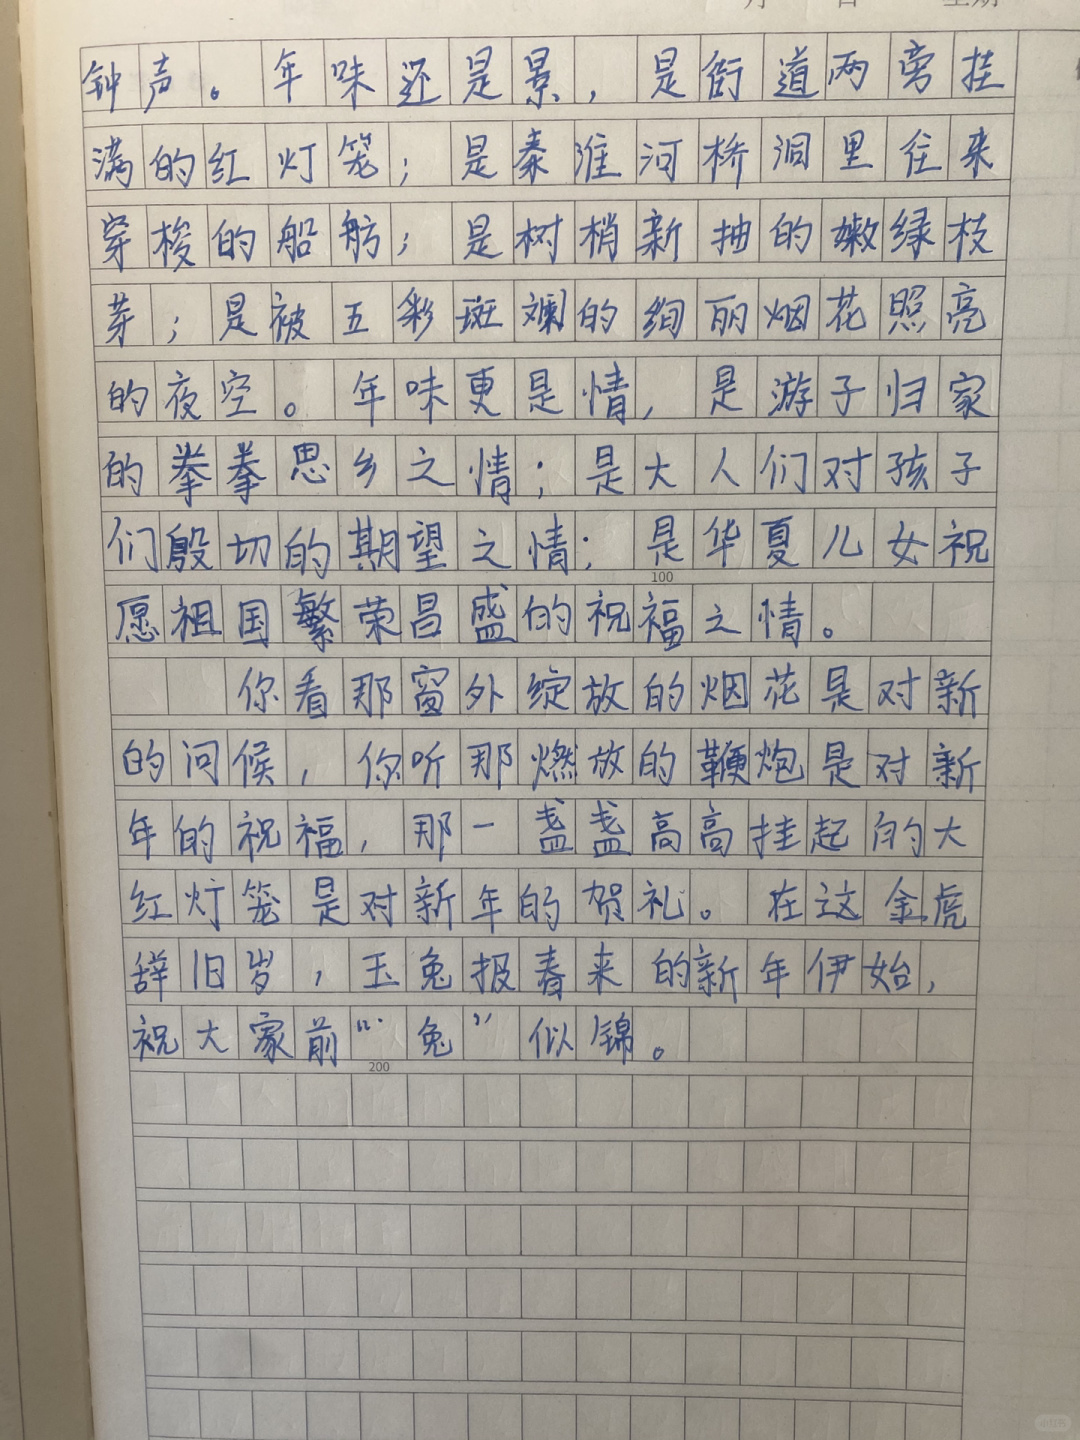 钟声。年味还是景，是街道两旁挂
满的红灯笼；是秦淮河桥洞里往来
穿梭的船舫；是树梢新抽的嫩绿枝
芽；是被五彩斑斓的绚丽烟花照亮
的夜空。年味更是情，是游子归家
的拳拳思乡之情；是大人们对孩子
们殷切的期望之情；是华夏儿女祝
100
愿祖国繁荣昌盛的祝福之情。
你看那窗外绽放的烟花是对新
的问候，你听那燃放的鞭炮是对新
年的祝福，那一盏盏高高挂起的大
红灯笼是对新年的贺礼。在这金虎
辞旧岁，玉兔报春来的新年伊始，
祝大家前“兔”似锦。
200